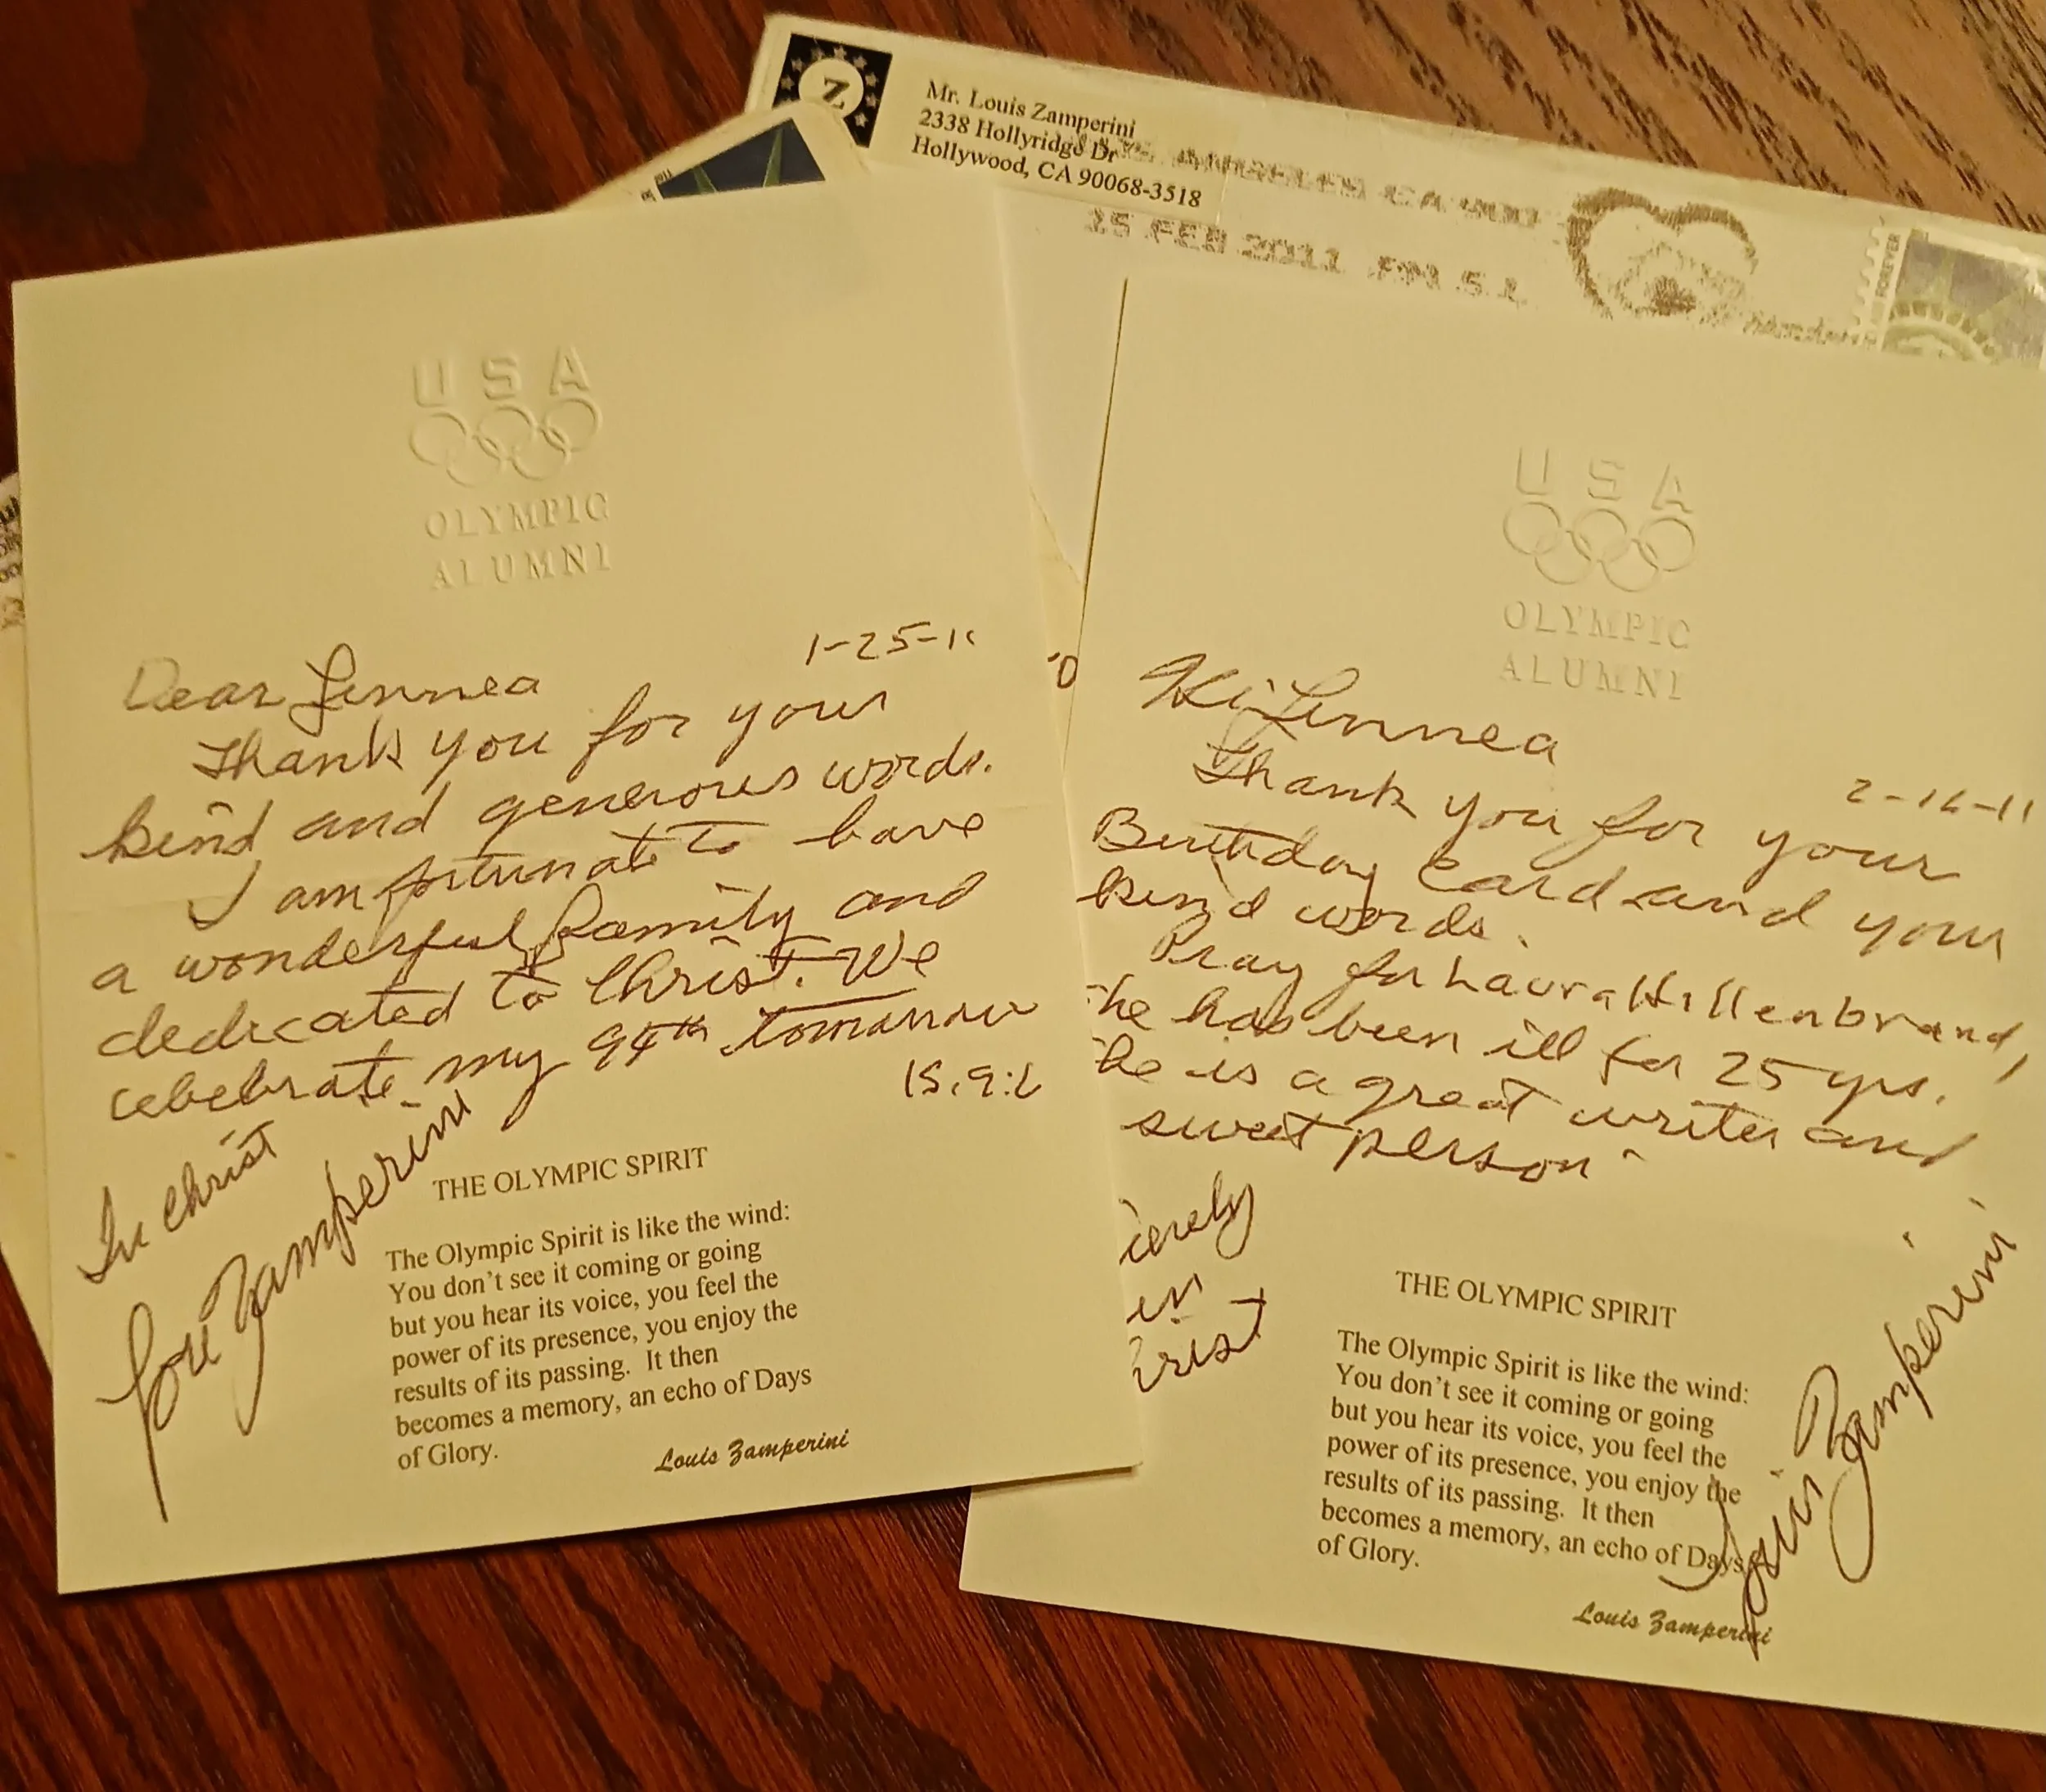 Z
Mr. Louis Zamperini
2338 Hollyridge Dr
Hollywood, CA 90068-3518
LOS ANGELES CA 900
15 FEB 2011 PM 5 L
FOREVER
USA
OLYMPIC
ALUMNI
1-25-11
Dear Lennea
Thank you for your
kind and generous words.
I am fortunate to have
a wonderful family and
dedicated to Christ. We
celebrate my 94th tomorrow
In Christ
Louis Zamperini
THE OLYMPIC SPIRIT
The Olympic Spirit is like the wind:
You don't see it coming or going
but you hear its voice, you feel the
power of its presence, you enjoy the
results of its passing. It then
becomes a memory, an echo of Days
of Glory.
Louis Zamperini
USA
OLYMPIC
ALUMNI
Hi Lennea
2-14-11
Thank you for your
Birthday Card and your
kind words.
Pray for Laura Hillenbrand,
he has been ill for 25 yrs.
he is a great writer and
sweet person
cerely
in
hrist
Louis Zamperini
THE OLYMPIC SPIRIT
The Olympic Spirit is like the wind:
You don't see it coming or going
but you hear its voice, you feel the
power of its presence, you enjoy the
results of its passing. It then
becomes a memory, an echo of Days
of Glory.
Louis Zamperini